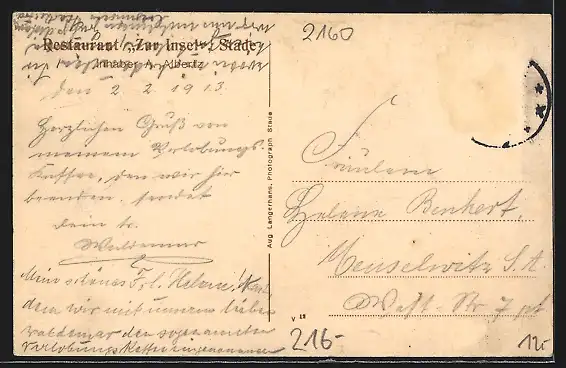 Restaurant „Zur Insel“, Stade
Inhaber A. Albertz
den 2. 2. 1913.
Herzlichen Gruß von
meinem Verlobungs-
Kaffee, den wir hier
beenden, sendet
dein tr.
Waldemar
Mein schönes Frl. Helene! Nach
dem wir mit unserem lieben
Waldemar den sogenannten
Verlobungskaffee eingenommen
Aug. Langerhans, Photograph Stade
2160
Fräulein
Helene Benkert,
Meuselwitz S. A.
Welt-Str 7 pt
V 18
216-
12.-